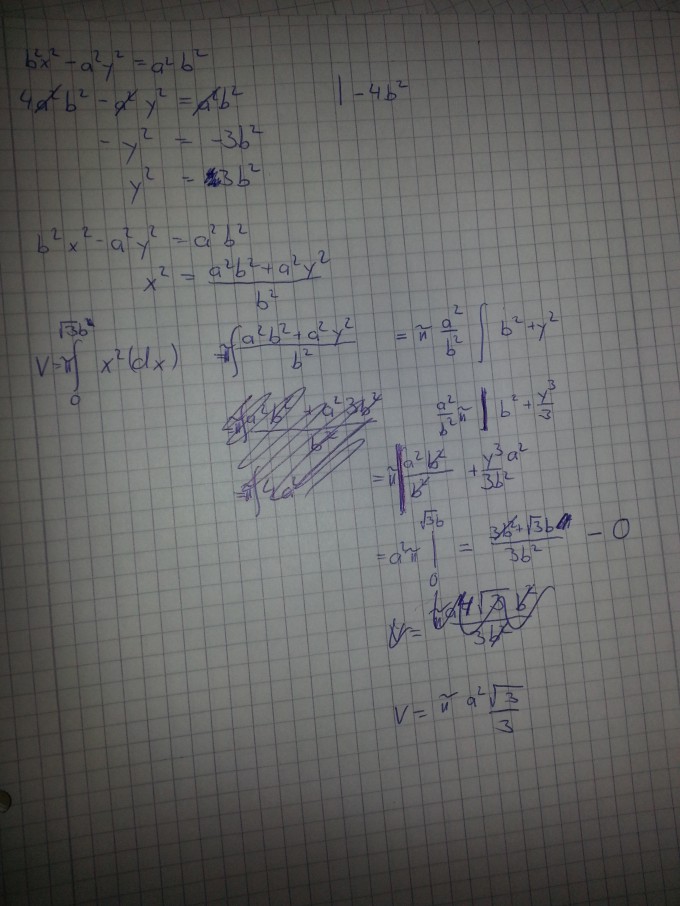 b²x² - a²y² = a²b²
4a²b² - a²y² = a²b² | - 4b²
- y² = -3b²
y² = 3b²
b²x² - a²y² = a²b²
x² = (a²b² + a²y²)/b²
V = π ∫₀^(√3b) x² (dx) = π ∫ (a²b² + a²y²)/b² = π a²/b² ∫ b² + y²
a²/b² π | b² + y³/3
= π | a²b²/b² + y³a²/3b²
= a²π |₀^(√3b) = (3b² + √3b)/3b² - 0
V = π a² √3/3